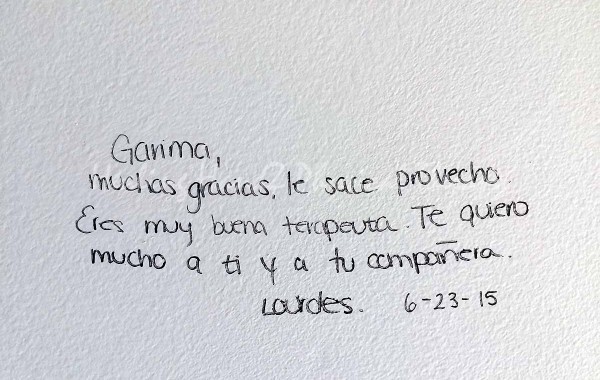 Garima,
muchas gracias, le sace provecho.
Eres muy buena terapeuta. Te quiero
mucho a ti y a tu compañera.
Lourdes. 6-23-15